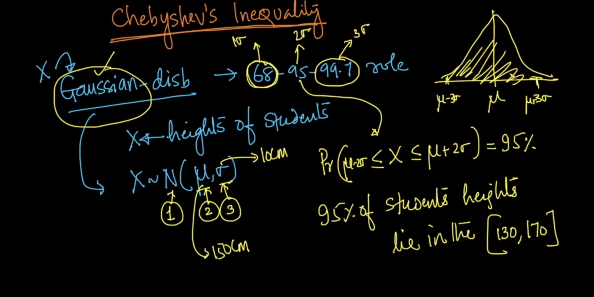 Chebyshev's Inequality
1σ 2σ 3σ
X
Gaussian-disb → 68-95-99.7 rule
μ-3σ μ μ+3σ
X ← heights of students
X ~ N(μ,σ) → 10cm
1 2 3
150cm
Pr(μ-2σ ≤ X ≤ μ+2σ) = 95%
95% of students heights
lie in the [130, 170]